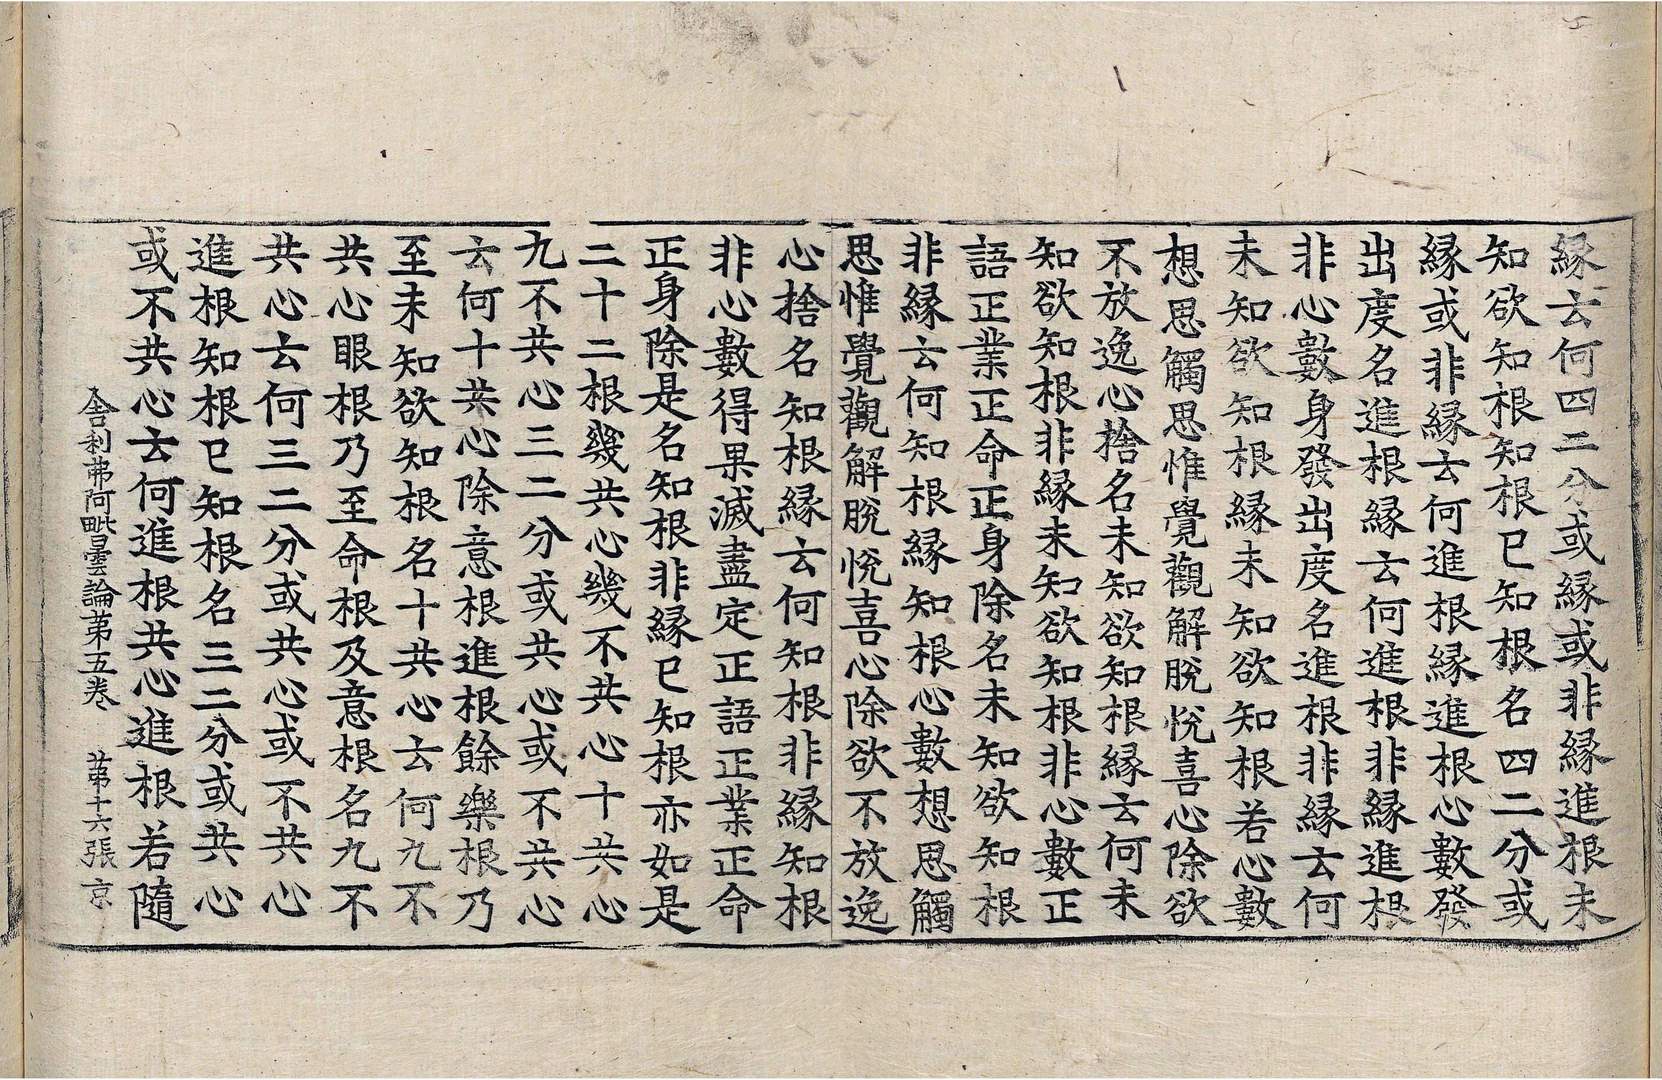 縁云何四二分或縁或非縁進根未
知欲知根知根已知根名四二分或
縁或非縁云何進根縁進根心數發
出度名進根縁云何進根非縁進根
非心數身發出度名進根非縁云何
未知欲知根縁未知欲知根若心數
想思觸思惟覺觀解脫悅喜心除欲
不放逸心捨名未知欲知根縁云何未
知欲知根非縁未知欲知根非心數正
語正業正命正身除名未知欲知根
非縁云何知根縁知根心數想思觸
思惟覺觀解脫悅喜心除欲不放逸
心捨名知根縁云何知根非縁知根
非心數得果滅盡定正語正業正命
正身除是名知根非縁已知根亦如是
二十二根幾共心幾不共心十共心
九不共心三二分或共心或不共心
云何十共心除意根進根餘樂根乃
至未知欲知根名十共心云何九不
共心眼根乃至命根及意根名九不
共心云何三二分或共心或不共心
進根知根已知根名三二分或共心
或不共心云何進根共心進根若隨
舍利弗阿毗曇論苐五卷 苐十六張 京